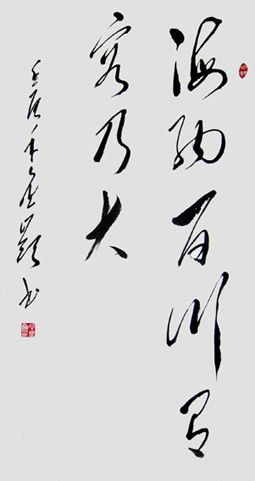 海纳百川有
容乃大
壬辰年 书